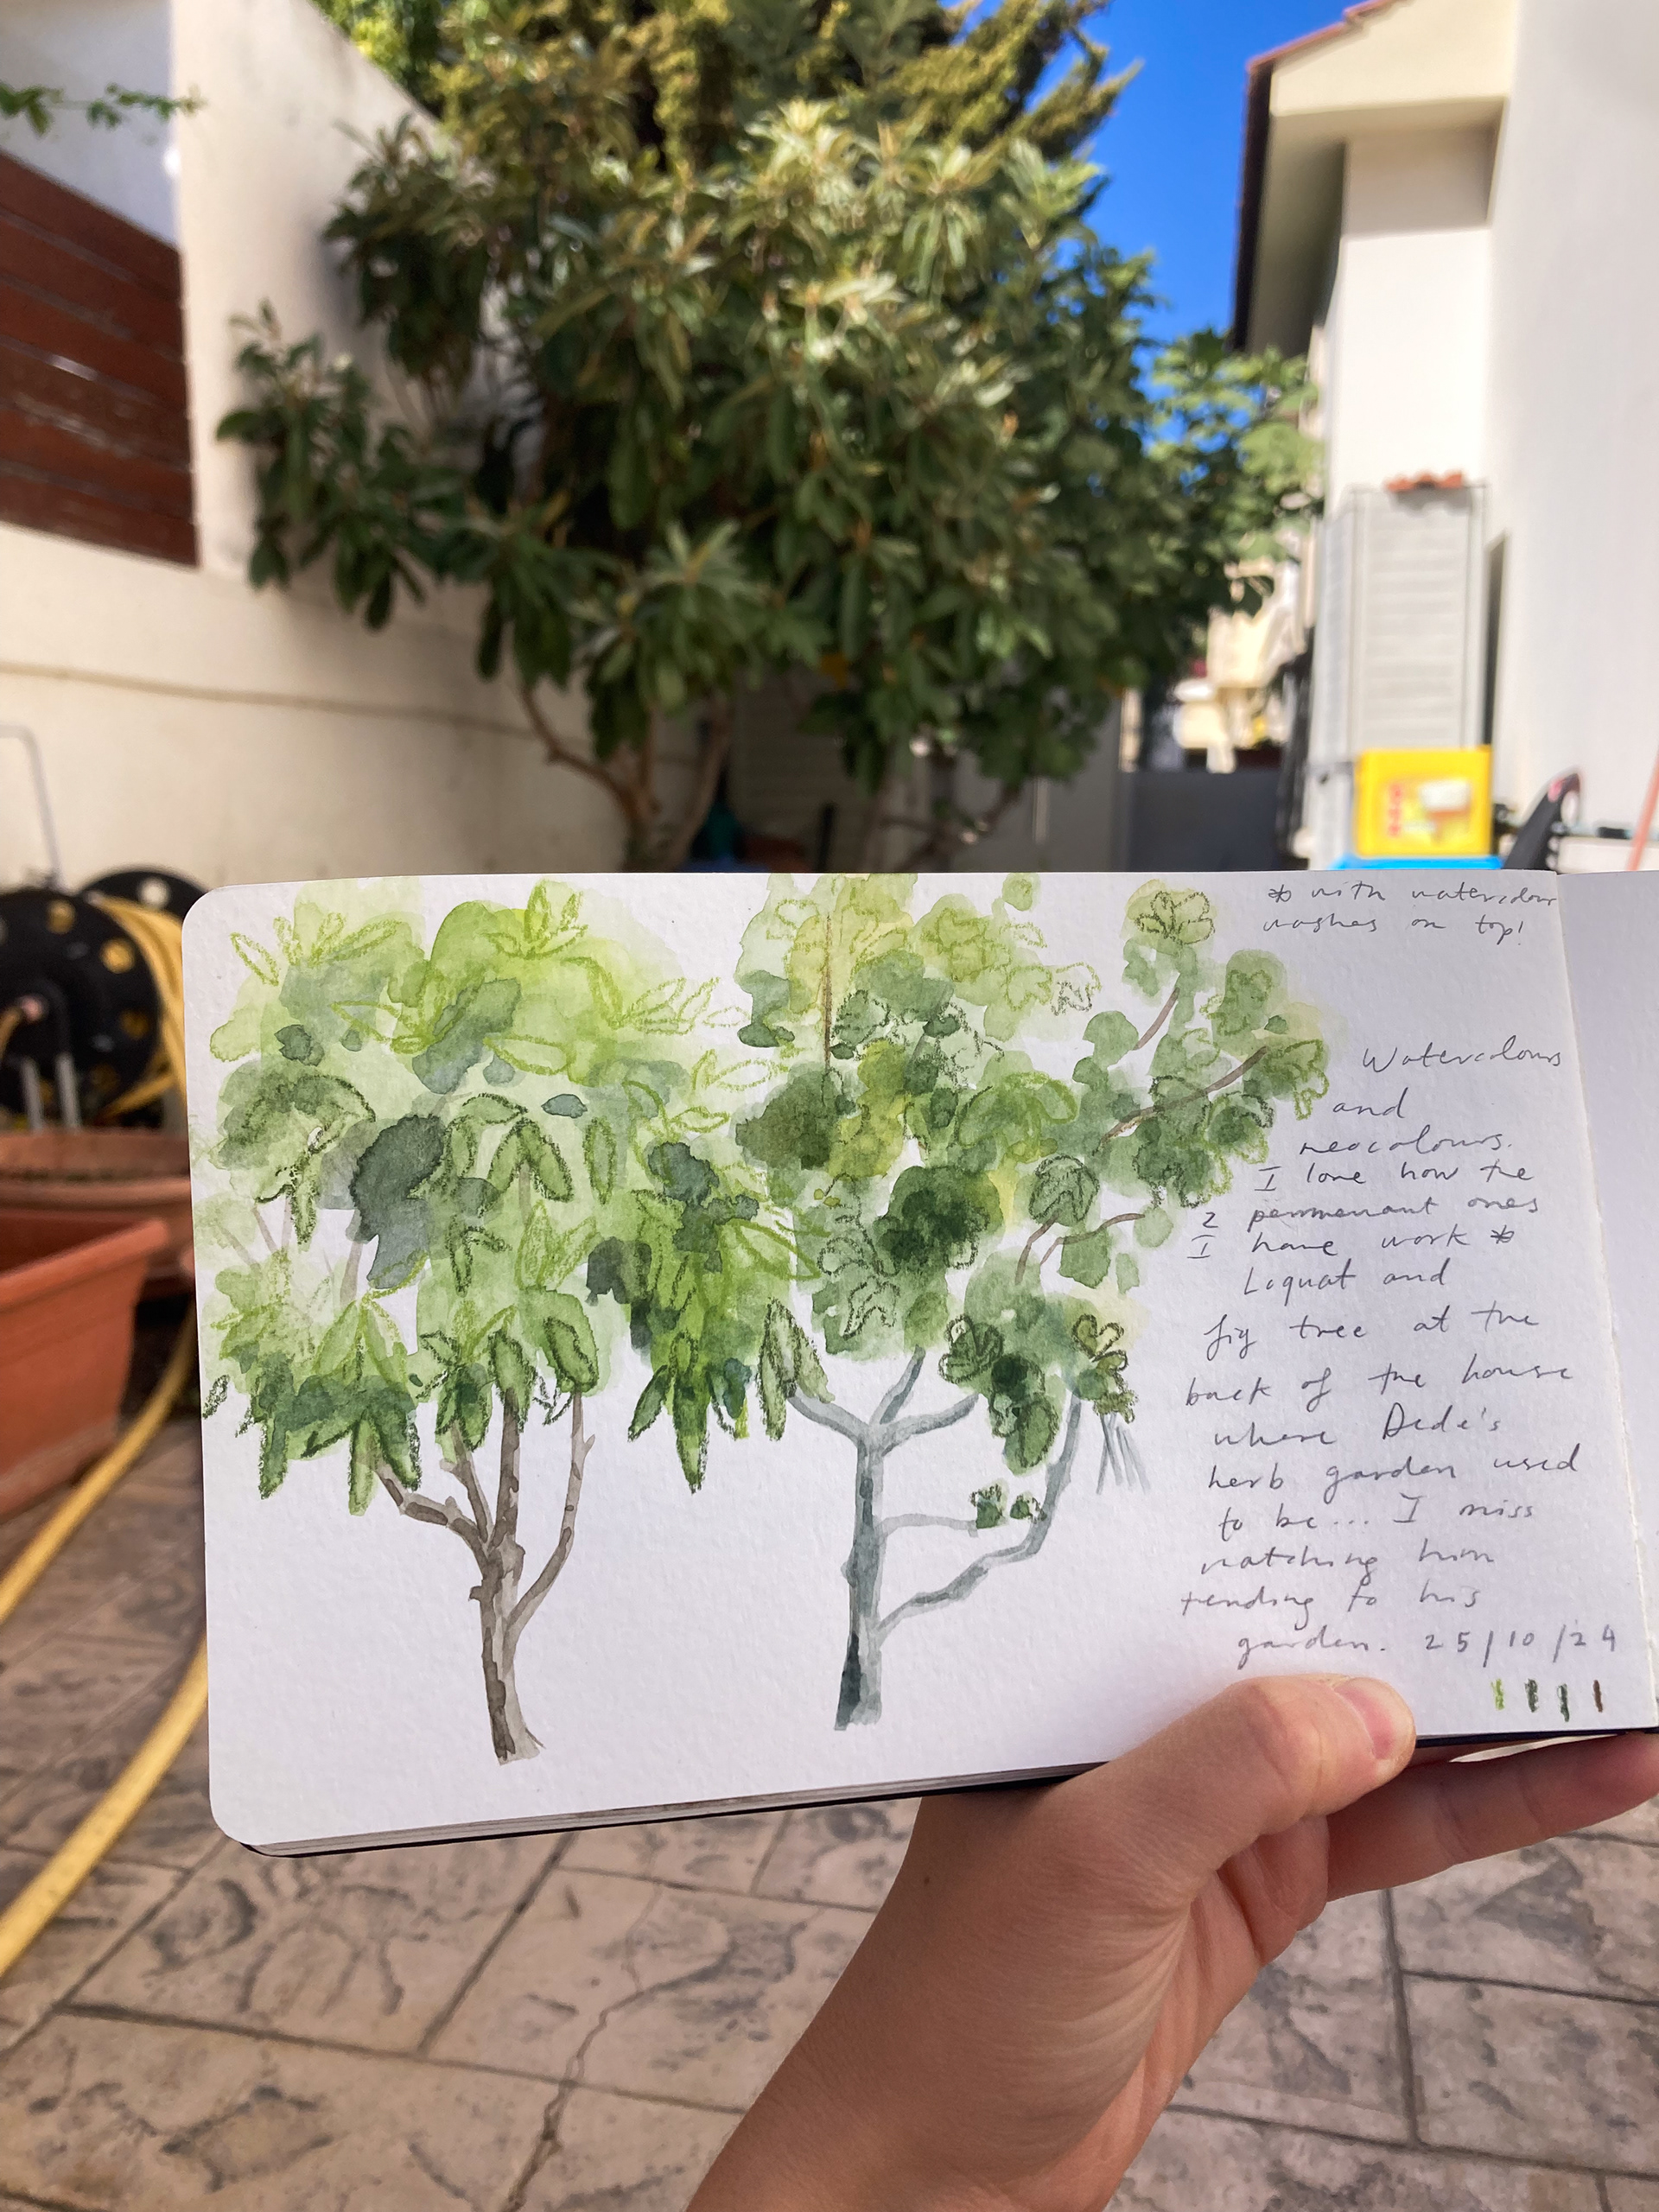 * with watercolour
washes on top!
Watercolours
and
neocolours.
I love how the
2 permenant ones
I have work *
Loquat and
fig tree at the
back of the house
where Dede's
herb garden used
to be... I miss
watching him
tending to his
garden. 25/10/24